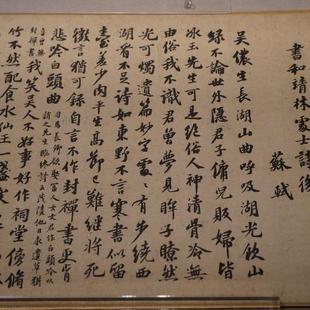 書和靖林處士詩後
蘇軾
吳儂生長湖山曲呼吸湖光飲山
綠不論世外隱君子傭兒販婦皆
冰玉先生可是絕俗人神清骨冷無
由俗我不識君曾夢見眸子瞭然
光可燭遺篇妙字處〻有步繞西
湖看不足詩如東野不言寒書似留
臺差少肉平生高節已難繼將死
微言猶可錄自言不作封禪書更肯
悲吟白頭曲
人女文君作白頭吟以
臨終詩云茂陵他日求遺草猶
封禪書
我笑吳人不好事好作祠堂傍脩
竹不然配食水仙王一盞寒